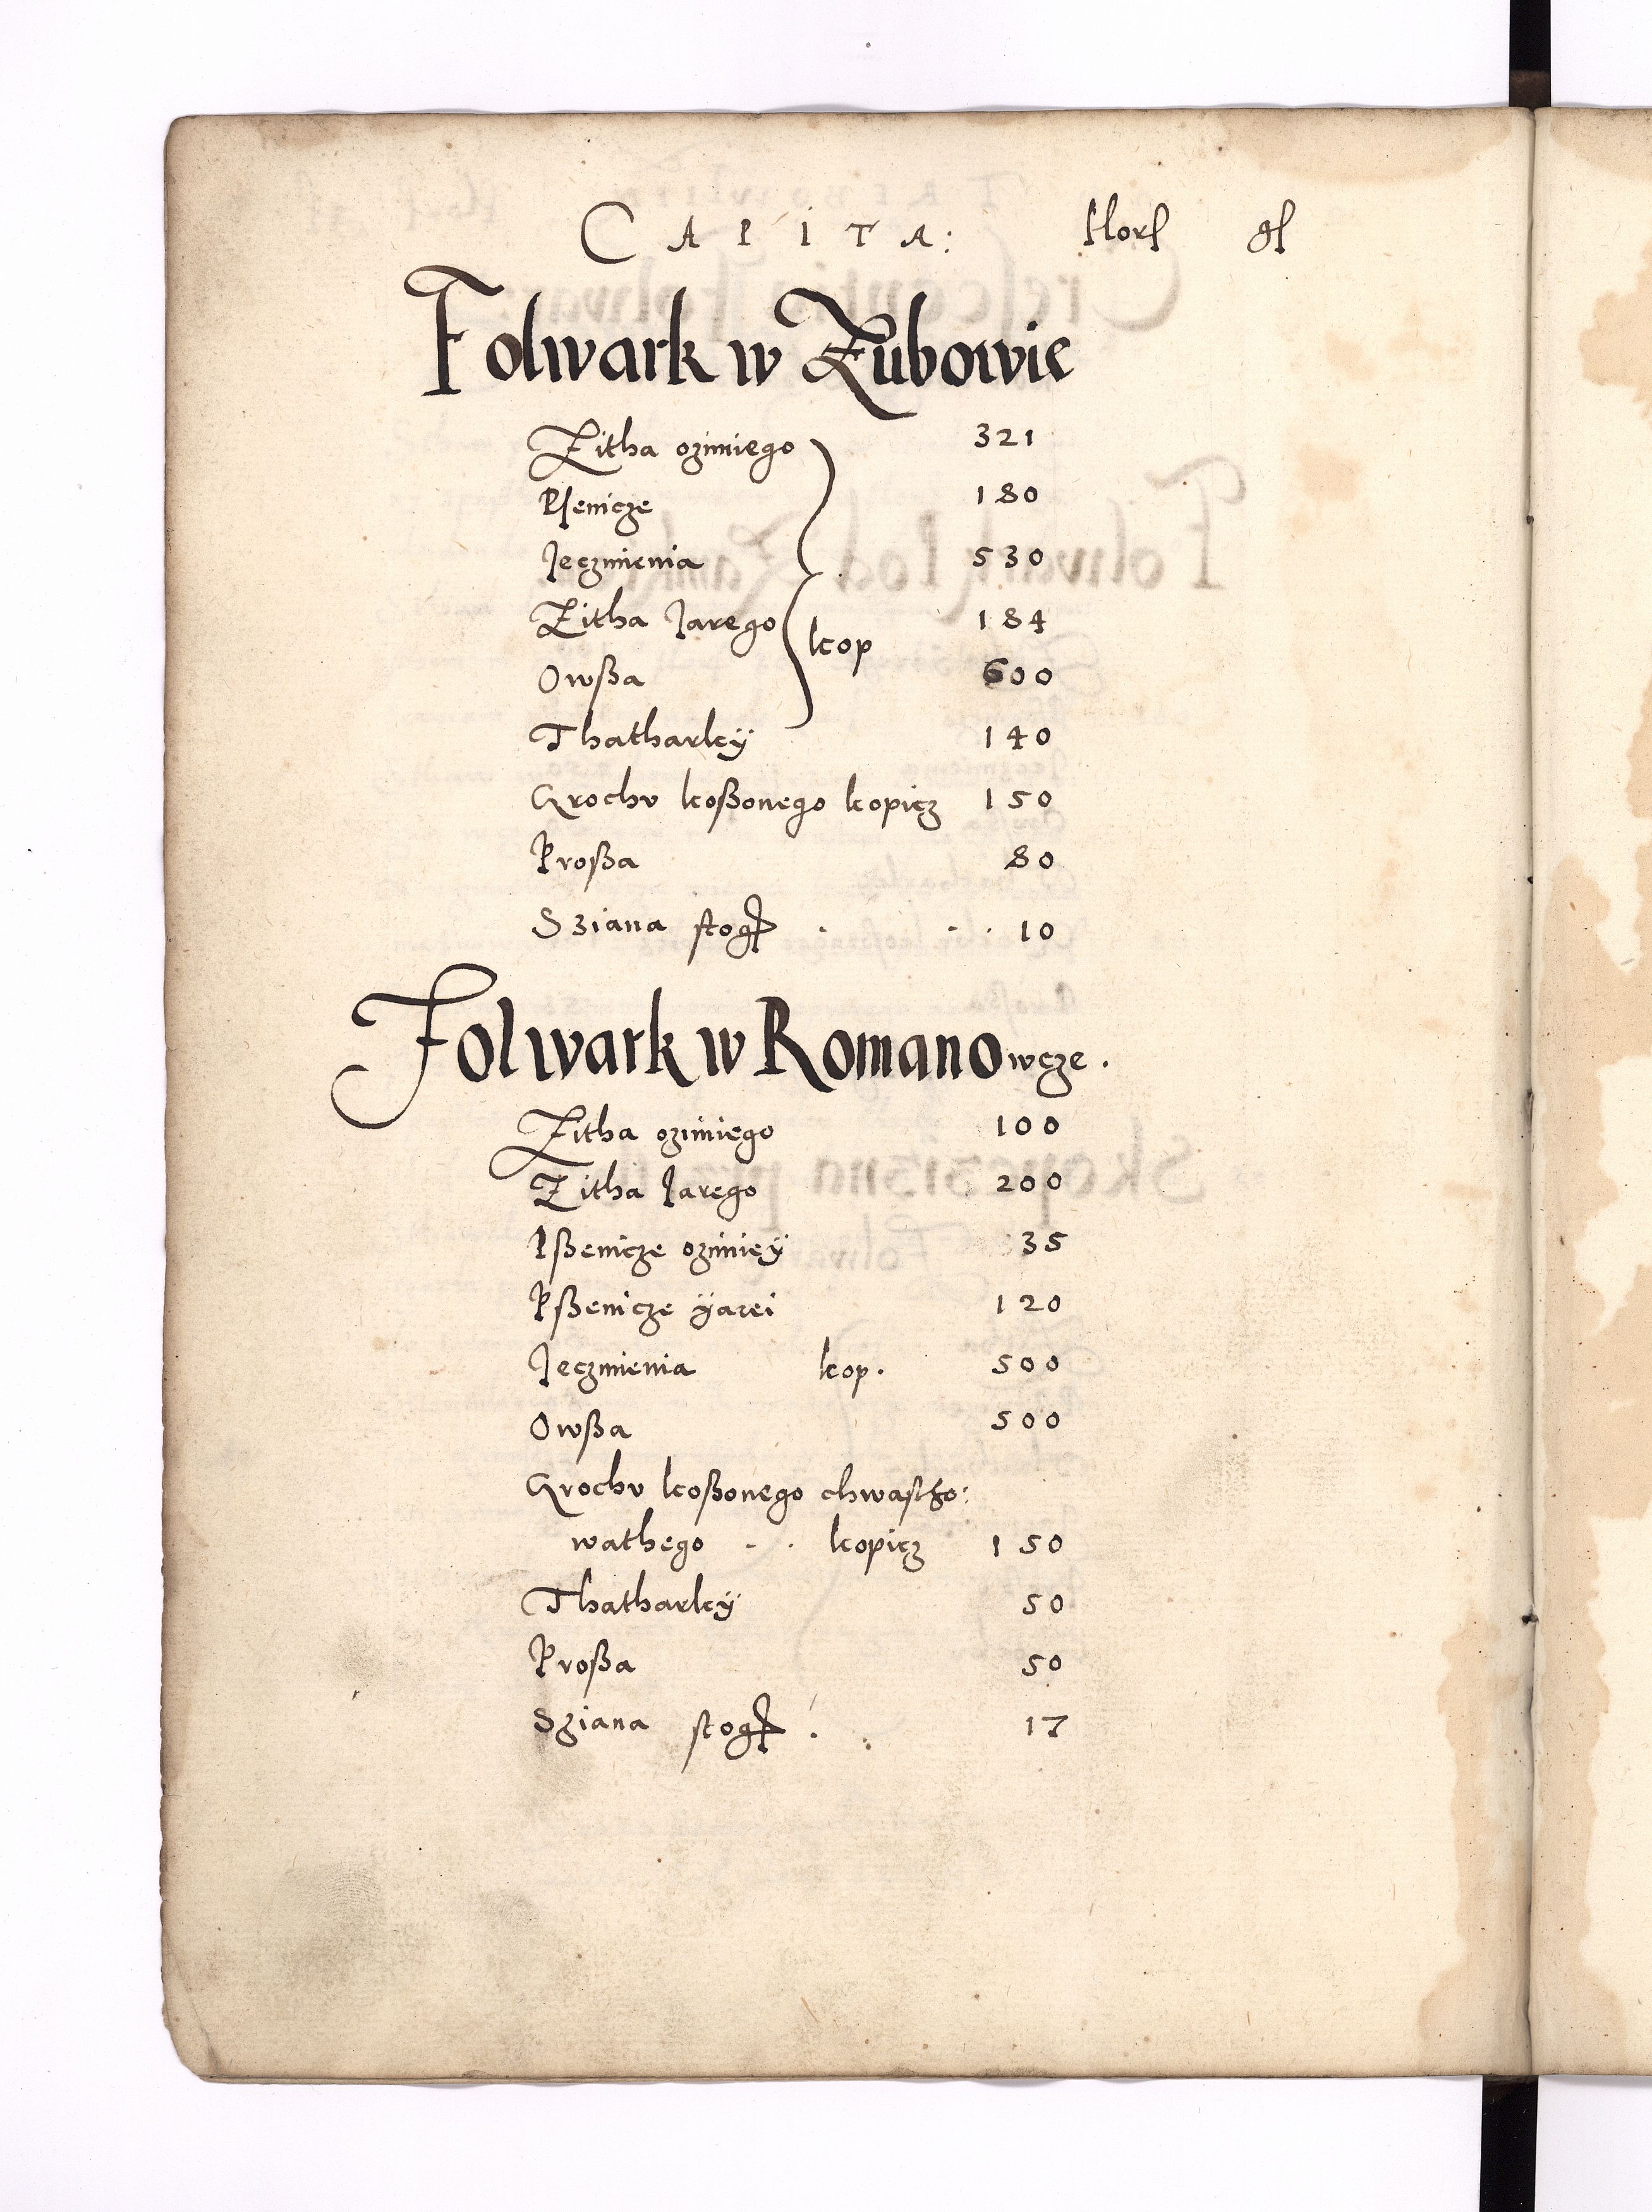 CAPITA: flor gl
Folwark w Zubowie
Zitha ozimiego 321
Psenicze 180
Jeczmienia 530
Zitha Jarego 184
kop
Owßa 600
Thatharkÿ 140
Grochv koßonego kopicz 150
Proßa 80
Sziana stog 10
Folwark w Romanowcze.
Zitha ozimiego 100
Zitha Jarego 200
Pßenicze ozimieÿ 35
Pßenicze ÿarei 120
Jeczmienia kop. 500
Owßa 500
Grochv koßonego chwastho:
wathego - . kopicz 150
Thatharkÿ 50
Proßa 50
Sziana stog 17